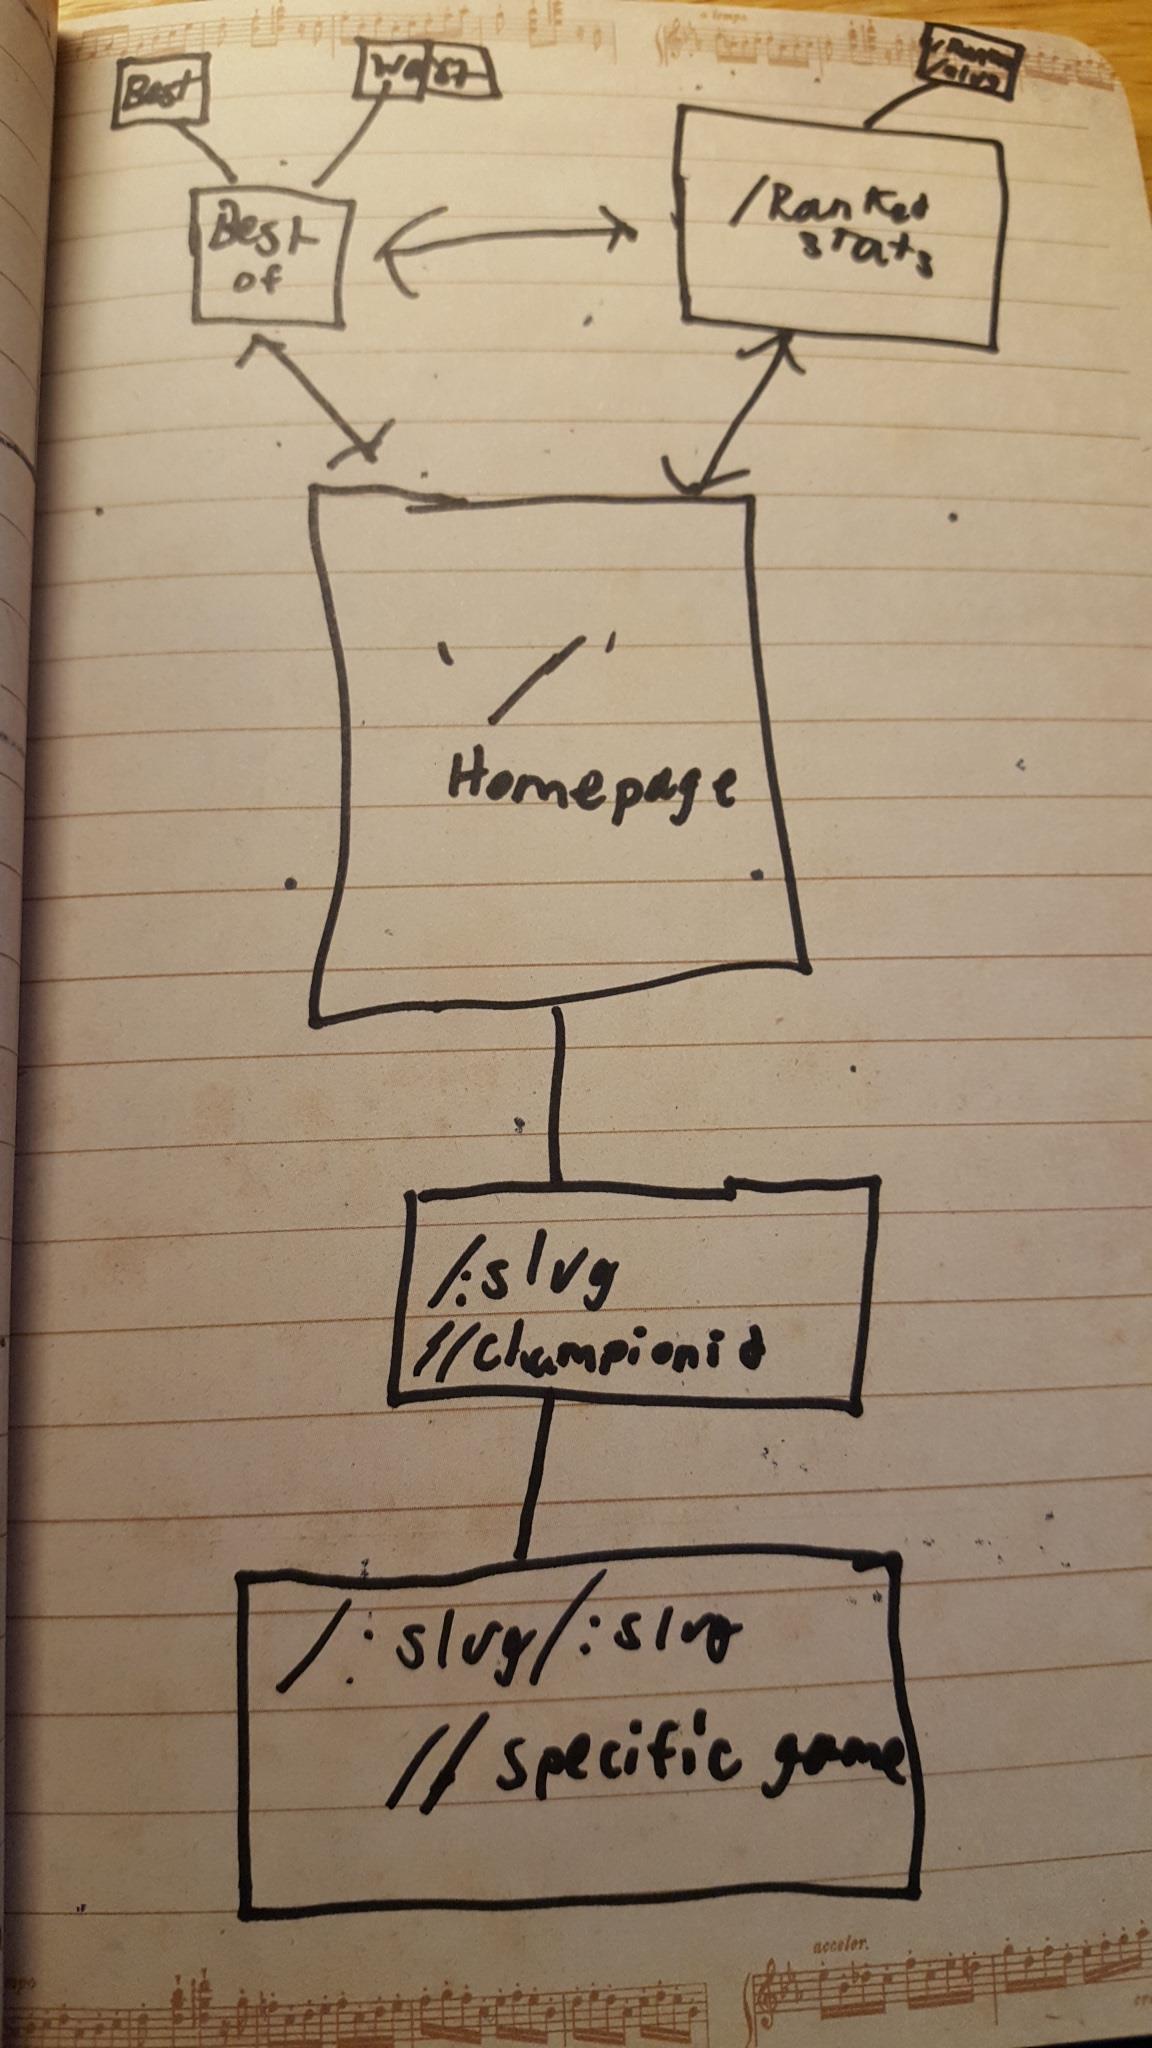 Best
Worst
/Ranked
/slug
Best
of
/Ranked
stats
a tempo
'/'
Homepage
/:slug
//Championid
/:slug/:slug
// specific game
acceler.